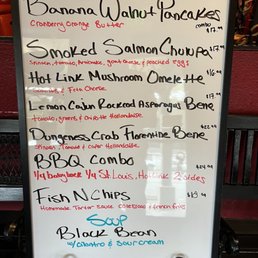 Banana Walnut Pancakes
Cranberry Orange Butter combo $17.99
Smoked Salmon Chulupa $17.99
Spinach, tomato, avocado, goat cheese & poached eggs
Hot Link Mushroom Omelette $16.99
& Feta Cheese
Lemon Cajun Rockcod Asparagus Bene
tomato, greens, & Chipotle Hollandaise
Dungeness Crab Florentine Bene $22.99
Spinach, tomato & caper Hollandaise
BBQ Combo $24.99
1/4 babyback 1/4 St Louis, Hotlink 2 sides
Fish N Chips $19.99
Homemade Tartar Sauce coleslaw & french fries
Soup
Black Bean
w/ cilantro & sour cream